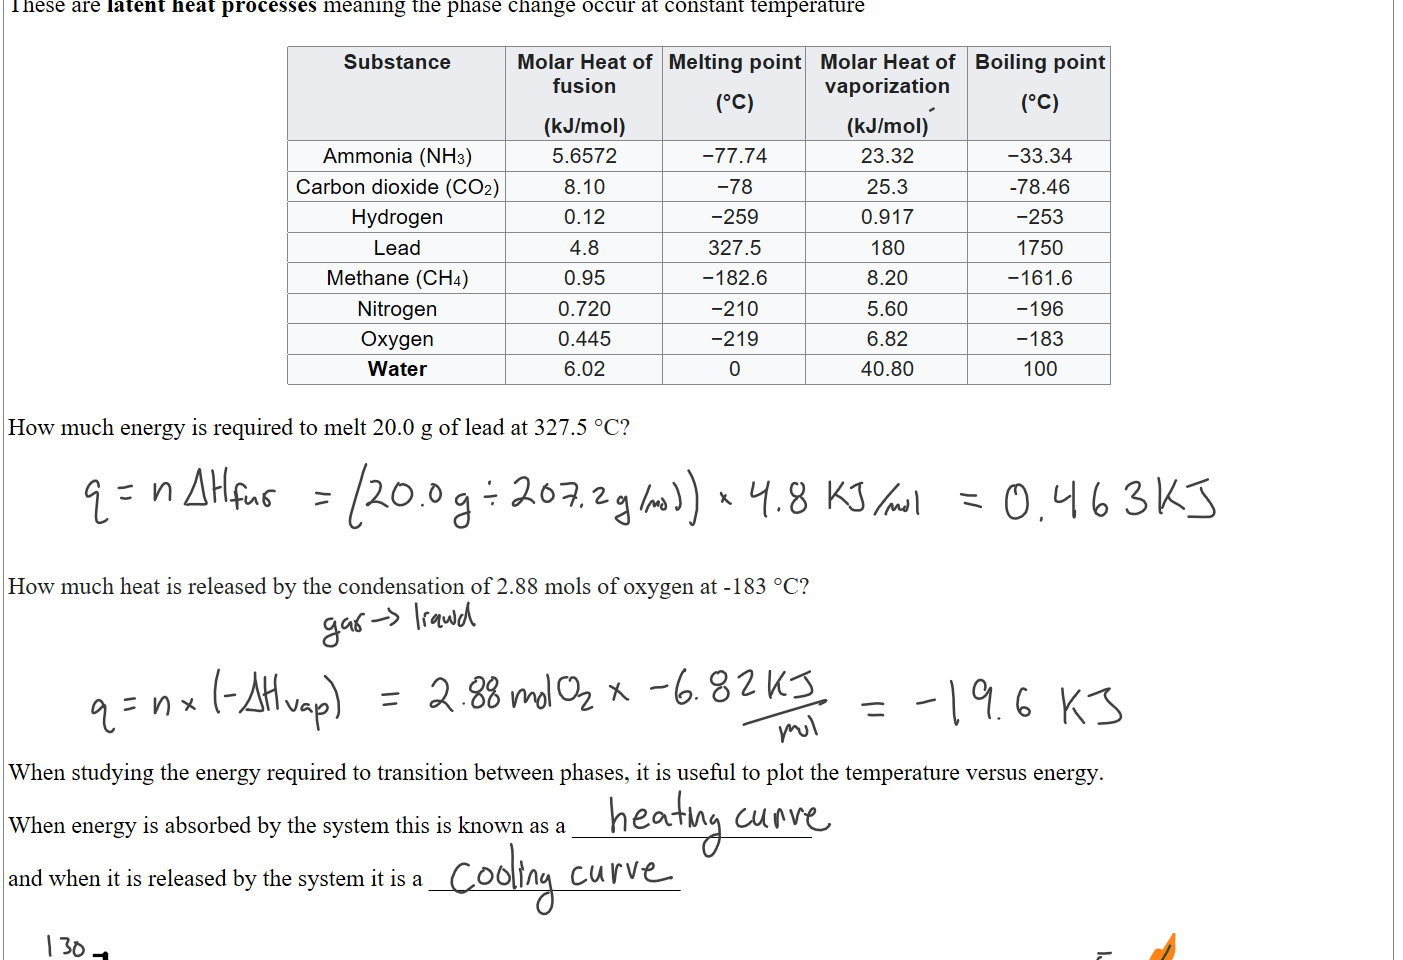 These are latent heat processes meaning the phase change occur at constant temperature
Substance Molar Heat of fusion (kJ/mol) Melting point (°C) Molar Heat of vaporization (kJ/mol) Boiling point (°C)
Ammonia (NH₃) 5.6572 −77.74 23.32 −33.34
Carbon dioxide (CO₂) 8.10 −78 25.3 -78.46
Hydrogen 0.12 −259 0.917 −253
Lead 4.8 327.5 180 1750
Methane (CH₄) 0.95 −182.6 8.20 −161.6
Nitrogen 0.720 −210 5.60 −196
Oxygen 0.445 −219 6.82 −183
Water 6.02 0 40.80 100
How much energy is required to melt 20.0 g of lead at 327.5 °C?
q = n ΔHfus = (20.0 g ÷ 207.2 g/mol) × 4.8 KJ/mol = 0.463 KJ
How much heat is released by the condensation of 2.88 mols of oxygen at -183 °C?
gas → liquid
q = n × (-ΔHvap) = 2.88 mol O₂ × -6.82 KJ/mol = -19.6 KJ
When studying the energy required to transition between phases, it is useful to plot the temperature versus energy.
When energy is absorbed by the system this is known as a heating curve
and when it is released by the system it is a cooling curve
130